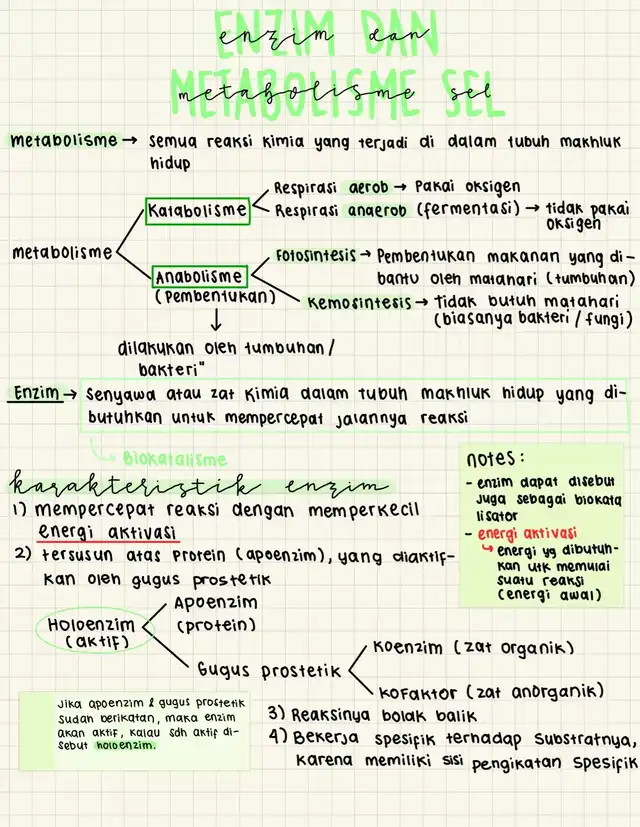 ENZIM DAN
enzim dan
METABOLISME SEL
metabolisme sel
metabolisme → semua reaksi kimia yang terjadi di dalam tubuh makhluk
hidup
metabolisme
Katabolisme
Respirasi aerob → Pakai oksigen
Respirasi anaerob (fermentasi) → tidak pakai
oksigen
Anabolisme
(Pembentukan)
Fotosintesis → Pembentukan makanan yang di-
bantu oleh matahari (tumbuhan)
Kemosintesis → Tidak butuh matahari
(biasanya bakteri / fungi)
↓
dilakukan oleh tumbuhan /
bakteri"
Enzim → Senyawa atau zat kimia dalam tubuh makhluk hidup yang di-
butuhkan untuk mempercepat jalannya reaksi
Biokatalisme
karakteristik enzim
1) mempercepat reaksi dengan memperkecil
energi aktivasi
2) tersusun atas Protein (apoenzim), yang diaktif-
kan oleh gugus prostetik
notes:
- enzim dapat disebut
juga sebagai biokata
lisator
- energi aktivasi
↳ energi yg dibutuh-
kan utk memulai
suatu reaksi
(energi awal)
Holoenzim
(aktif)
Apoenzim
(protein)
Gugus prostetik
Koenzim (zat organik)
Kofaktor (zat anorganik)
Jika apoenzim & gugus prostetik
sudah berikatan, maka enzim
akan aktif, kalau sdh aktif di-
sebut holoenzim.
3) Reaksinya bolak balik
4) Bekerja spesifik terhadap substratnya,
karena memiliki sisi pengikatan spesifik